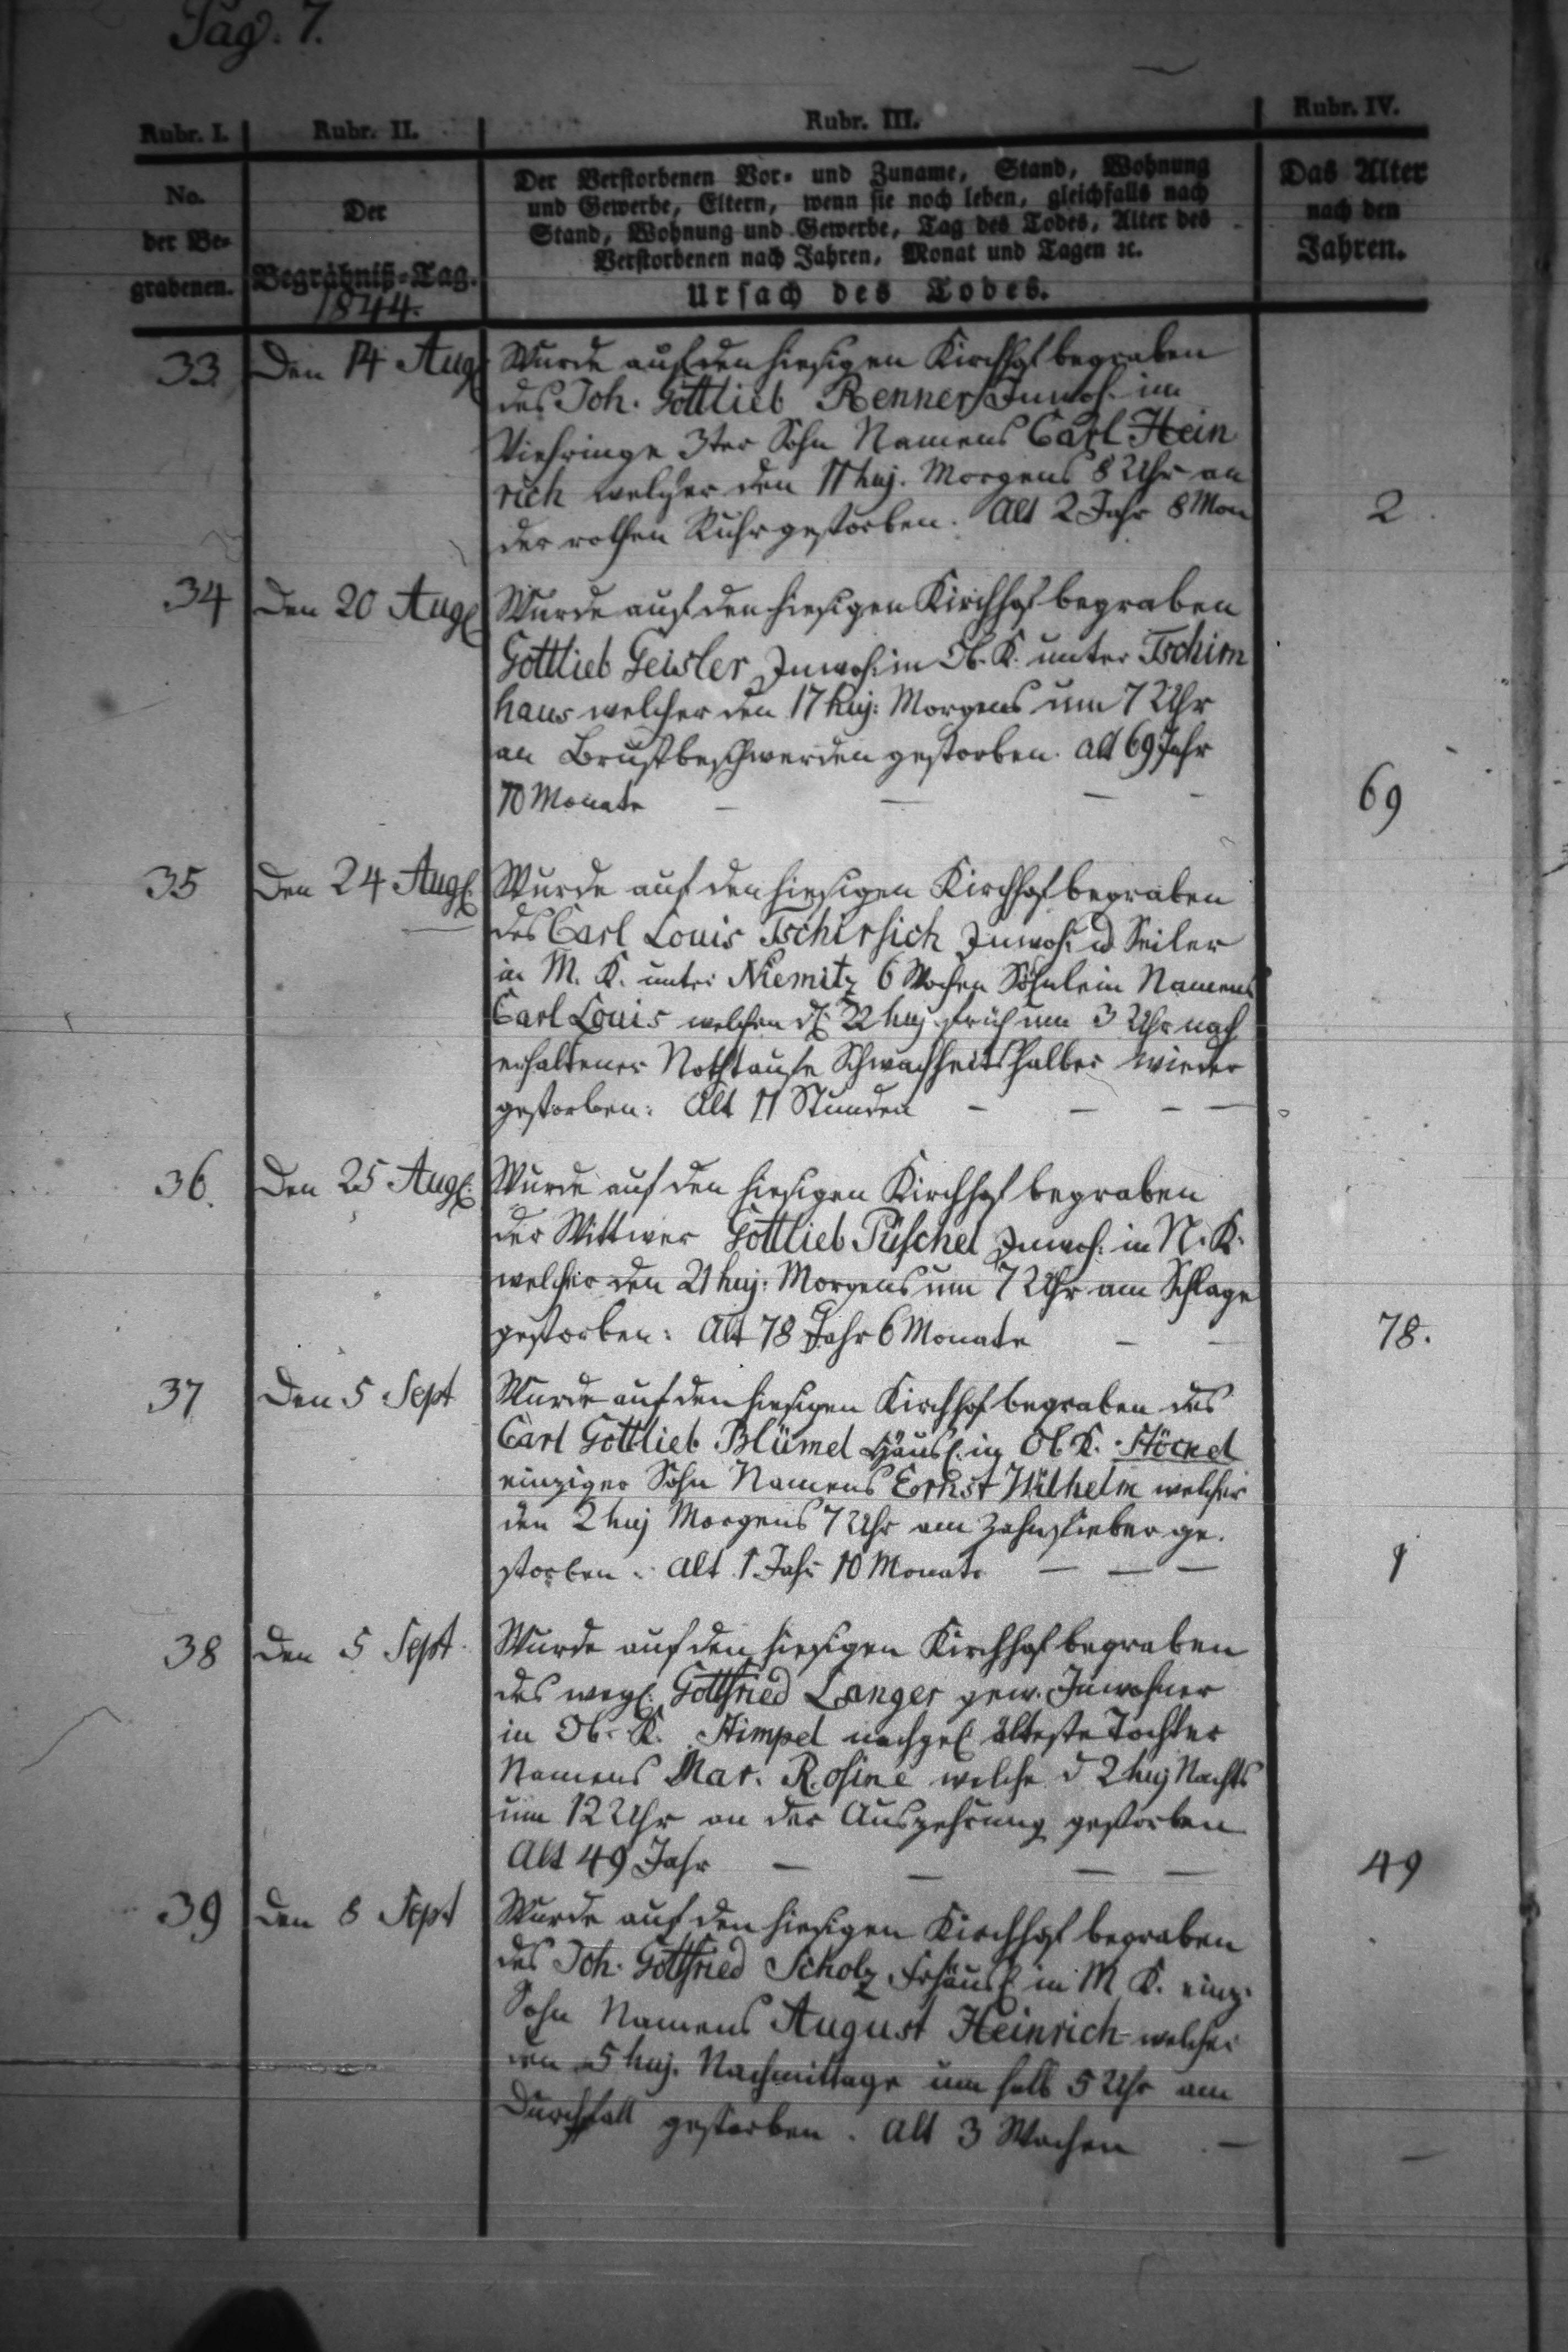 Pag. 7.
Rubr. I. Rubr. II. Rubr. III. Rubr. IV.
No. der Be- grabenen.
Der Begräbniß-Tag. 1844.
Der Verstorbenen Vor- und Zuname, Stand, Wohnung
und Gewerbe, Eltern, wenn sie noch leben, gleichfalls nach
Stand, Wohnung und Gewerbe, Tag des Todes, Alter des
Verstorbenen nach Jahren, Monat und Tagen ꝛc.
Ursach des Todes.
Das Alter nach den Jahren.
33. Den 14 Aug Wurde auf den hiesigen Kirchhof begraben
des Joh. Gottlieb Renner Inwoh. im
Viehringe 3ter Sohn Namens Carl Hein
rich welcher den 11 huj. Morgens 8 Uhr an
der rothen Ruhr gestorben. Alt 2 Jahr 8 Mon 2.
34 Den 20 Aug Wurde auf den hiesigen Kirchhof begraben
Gottlieb Geisler Inwoh. in Ob. K. unter Tschirn
haus welcher den 17 huj: Morgens um 7 Uhr
an Brustbeschwerden gestorben. Alt 69 Jahr
10 Monate — — — - 69
35 Den 24 Aug Wurde auf den hiesigen Kirchhof begraben
des Carl Louis Tschirsich Inwoh: u Seiler
in M. K. unter Niemitz 6 Wochen Söhnlein Namens
Carl Louis welcher d 22 huj früh um 3 Uhr nach
erhaltener Nothtaufe Schwachheits halber wieder
gestorben: Alt 11 Stunden - — - —
36. Den 25 Aug Wurde auf den hiesigen Kirchhof begraben
der Wittwer Gottlieb Püschel Inwoh: in N. K.
welcher den 21 huj: Morgens um 7 Uhr am Schlage
gestorben: Alt 78 Jahr 6 Monate — - 78.
37 Den 5 Sept Wurde auf den hiesigen Kirchhof begraben des
Carl Gottlieb Blümel Häusl. in Ob K. Stöckel
einziger Sohn Namens Ernst Wilhelm welcher
den 2 huj Morgens 7 Uhr am Zahnfieber ge.
storben. Alt 1 Jahr 10 Monate — — — 1
38 Den 5 Sept. Wurde auf den hiesigen Kirchhof begraben
des Gottfried Langer gew. Inwohner
in Ob. K. Stimpel nachgel älteste Tochter
Namens Mar. Rosine welche d 2 huj Nachts
um 12 Uhr an der Auszehrung gestorben
Alt 49 Jahr — — — — 49
39 Den 8 Sept Wurde auf den hiesigen Kirchhof begraben
des Joh. Gottfried Scholz Frhäusl in M K. einz.
Sohn Namens August Heinrich welcher
den 5 huj. Nachmittage um halb 5 Uhr am
Durchfall gestorben. Alt 3 Wochen — —